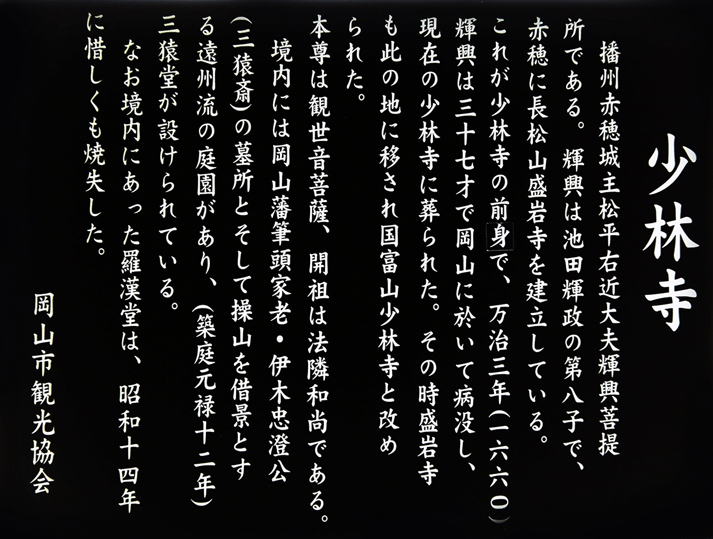 少林寺
播州赤穂城主松平右近大夫輝興菩提
所である。輝興は池田輝政の第八子で、
赤穂に長松山盛岩寺を建立している。
これが少林寺の前身で、万治三年(一六六〇)
輝興は三十七才で岡山に於いて病没し、
現在の少林寺に葬られた。その時盛岩寺
も此の地に移され国富山少林寺と改め
られた。
本尊は観世音菩薩、開祖は法隣和尚である。
境内には岡山藩筆頭家老・伊木忠澄公
(三猿斎)の墓所とそして操山を借景とす
る遠州流の庭園があり、(築庭元禄十二年)
三猿堂が設けられている。
なお境内にあった羅漢堂は、昭和十四年
に惜しくも焼失した。
岡山市観光協会